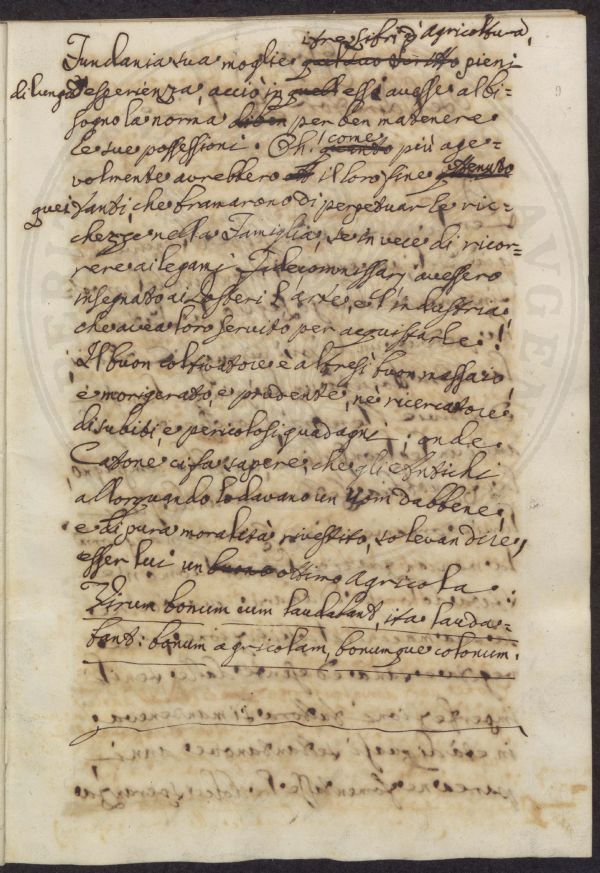 i tre Libri d'Agricoltura,
Fundania sua moglie quel suo scritto pieni
di lunga esperienza, acciò in quelli essa avesse al bi=
sogno la norma di ben per ben mantenere
le sue possessioni. Oh! come quanto più age=
volmente avrebbero il loro fine ottenuto
quei tanti, che bramarono di perpetuar le ric=
chezze nella Famiglia, se in vece di ricor=
rere ai legami Fidecommissarj avessero
insegnato ai Posteri l'arte, e l'industria,
che avea loro servito per acquistarle!
Il buon coltivatore è altresì buon massaio,
è morigerato, e prudente, nè ricercatore
di subiti, e pericolosi guadagni; onde
Catone ci fa sapere, che gli Antichi
allorquando lodavano un Uom dabbene,
e di pura moralità rivestito, solevan dire,
esser lui un buono ottimo Agricola.
Virum bonum cum laudabant, ita lauda=
bant: bonum agricolam, bonumque colonum.